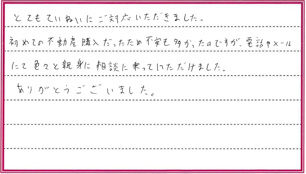 とてもていねいにご対応いただきました。
初めての不動産購入だったため不安も多かったのですが、電話やメール
にて色々と親身に相談に乗っていただけました。
ありがとうございました。